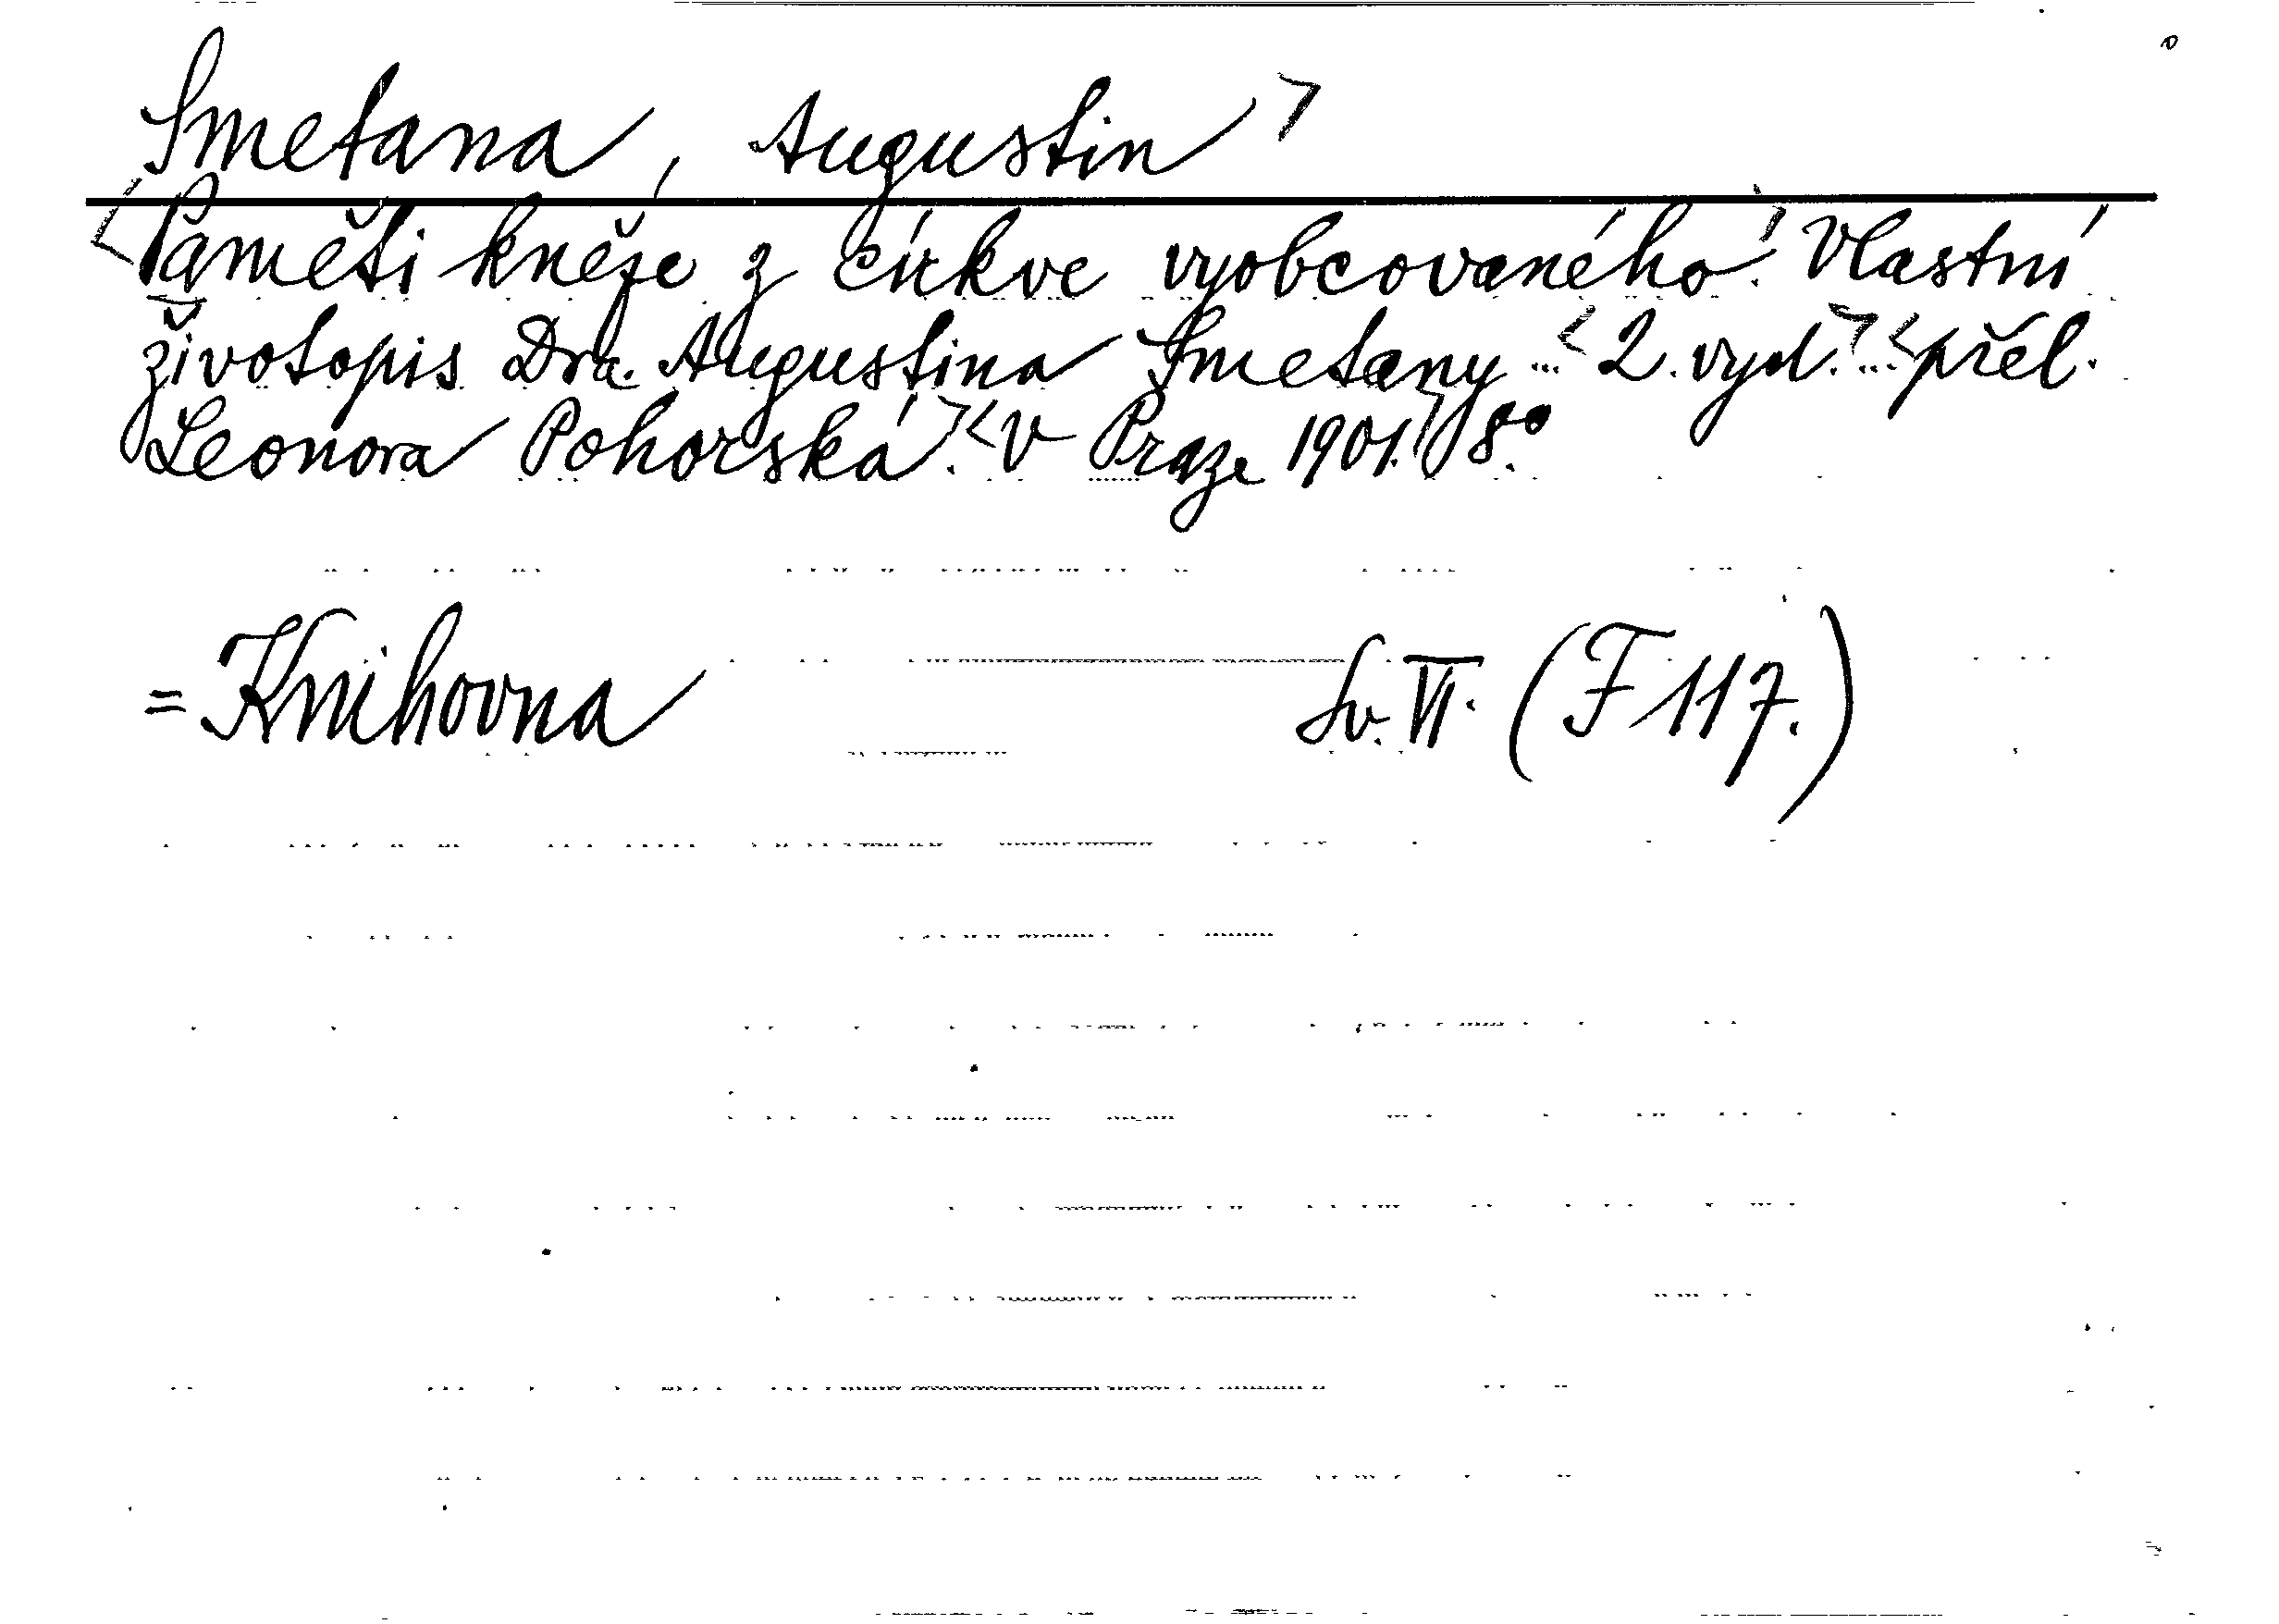 Smetana, Augustin
Paměti kněze z církve vyobcovaného. Vlastní
životopis Dra. Augustina Smetany ... 2. vyd. ... přel.
Leonora Pohorská. V Praze 1901. 8°.
= Knihovna Sv. VI. (F 117.)